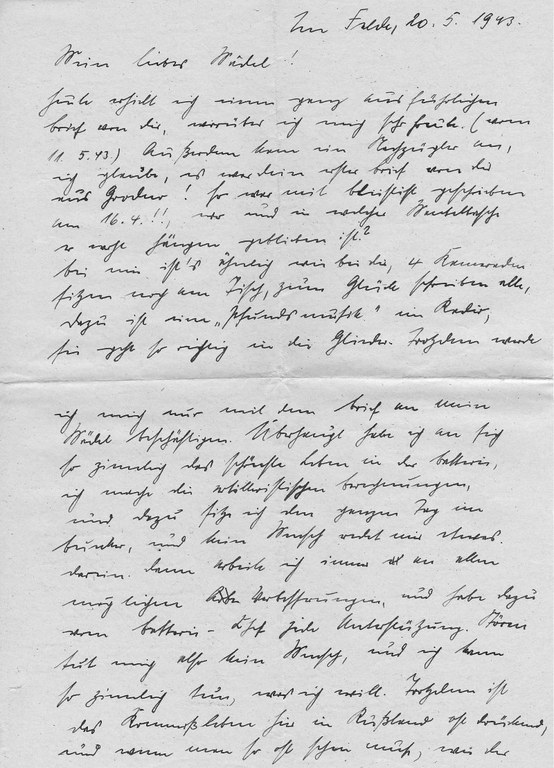 Im Felde, 20. 5. 1943.
Mein liebes Mädel!
Heute erhielt ich einen ganz ausführlichen
Brief von dir, worüber ich mich sehr freute. (vom
11. 5. 43.) Außerdem kam ein Nachzügler an,
ich glaube, es war dein erster Brief von dir
aus! Er war mit Bleistift geschrieben
am 16. 4.!!, wo und in welcher Beuteltasche
er wohl hängen geblieben ist?
Bei mir ist's ähnlich wie bei dir, 4 Kameraden
sitzen noch am Tisch, zum Glück schreiben alle,
dazu ist eine „Schundsmusik" im Radio,
sie geht so richtig in die Glieder. Trotzdem werde
ich mich nur mit dem Brief an mein
Mädel beschäftigen. Überhaupt habe ich an sich
so ziemlich das schönste Leben in der Batterie,
ich mache die artilleristischen Berechnungen,
und dazu sitze ich den ganzen Tag im
Bunker, und kein Mensch redet mir etwas
darein. Dann arbeite ich immer an allen
möglichen Verbesserungen, und habe dazu
vom Batterie-Chef jede Unterstützung. Stören
tut mich also kein Mensch, und ich kann
so ziemlich tun, was ich will. Trotzdem ist
das Kommißleben hier in Rußland oft drückend,
und wenn man so oft sehen muß, wie der